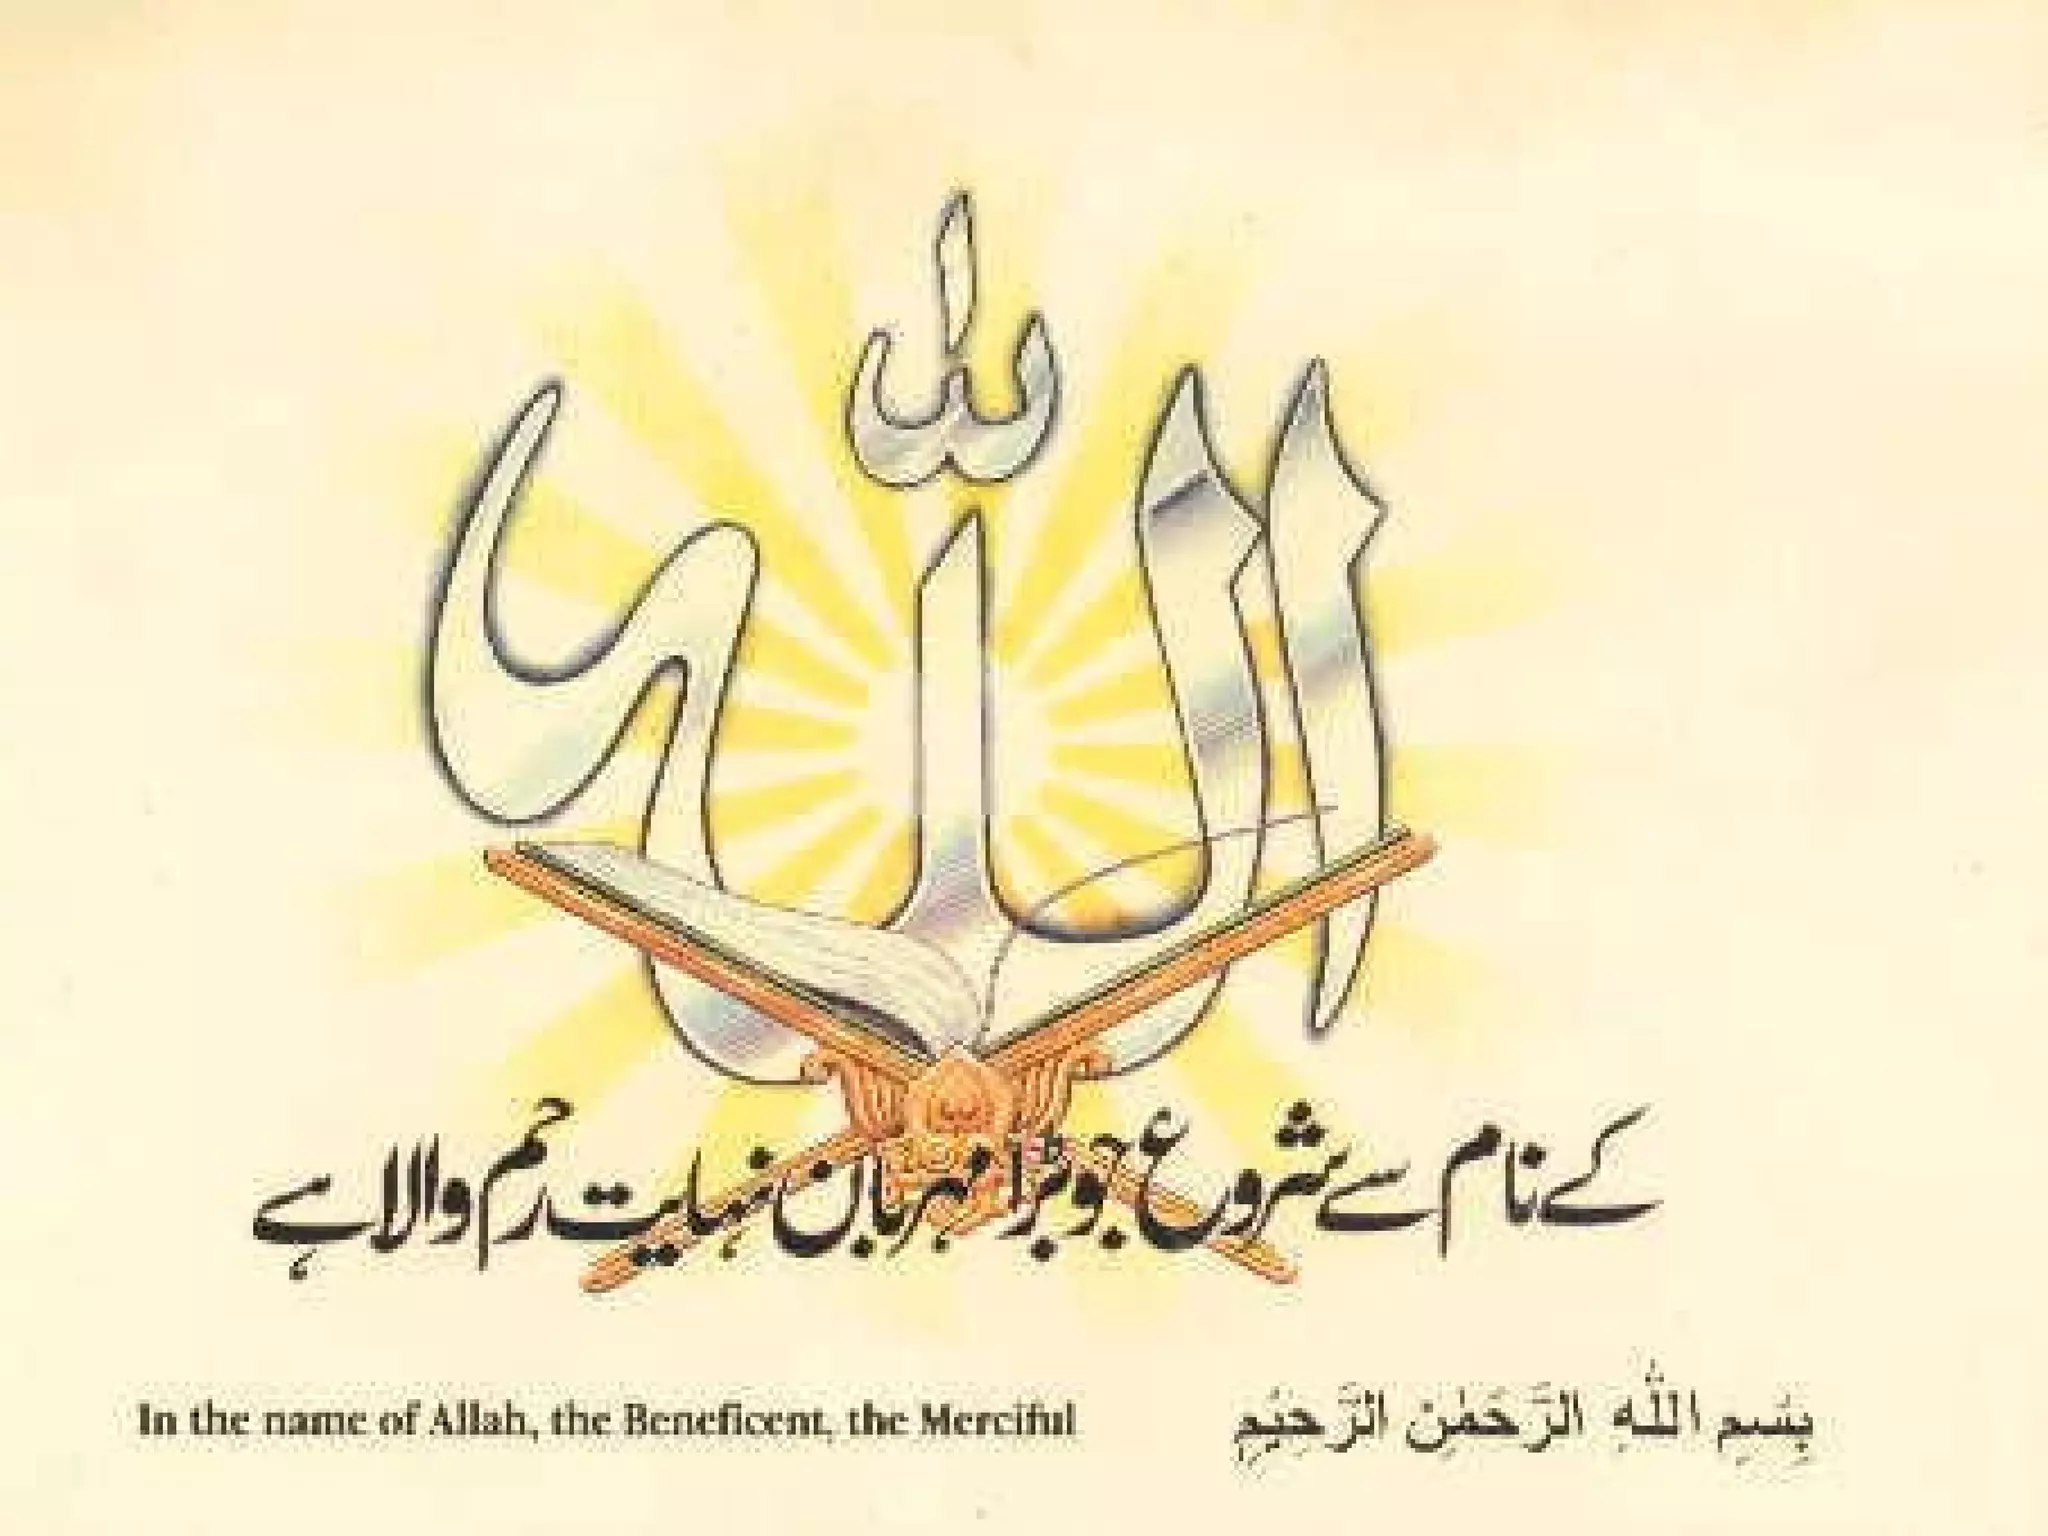 الله
کے نام سے شروع جو بڑا مہربان نہایت رحم والا ہے
In the name of Allah, the Beneficent, the Merciful
بِسْمِ اللَّهِ الرَّحْمٰنِ الرَّحِيْمِ